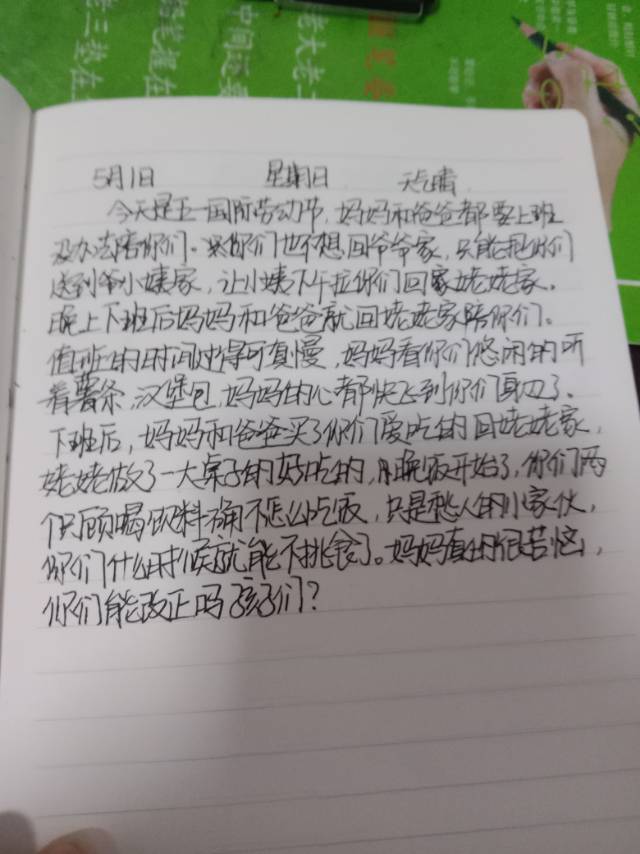 老三垫在
笔握在
中间还要
老大老二
5月1日 星期日 天气晴
今天是五一国际劳动节,妈妈和爸爸都要上班
没办法陪你们。你们也不想回爷爷家,只能把你们
送到小姨家,让小姨下午拉你们回家姥姥家。
晚上下班后妈妈和爸爸就回姥姥家陪你们。
值班的时间过得可真慢,妈妈看你们悠闲的所
着薯条,汉堡包,妈妈的心都快飞到你们身边了。
下班后,妈妈和爸爸买了你们爱吃的回姥姥家,
姥姥做了一大桌子的好吃的,晚饭开始了,你们两
个只顾喝饮料确不怎么吃饭,只是愁人的小家伙,
你们什么时候就能不挑食了。妈妈真的很苦恼,
你们能改正吗孩子们?